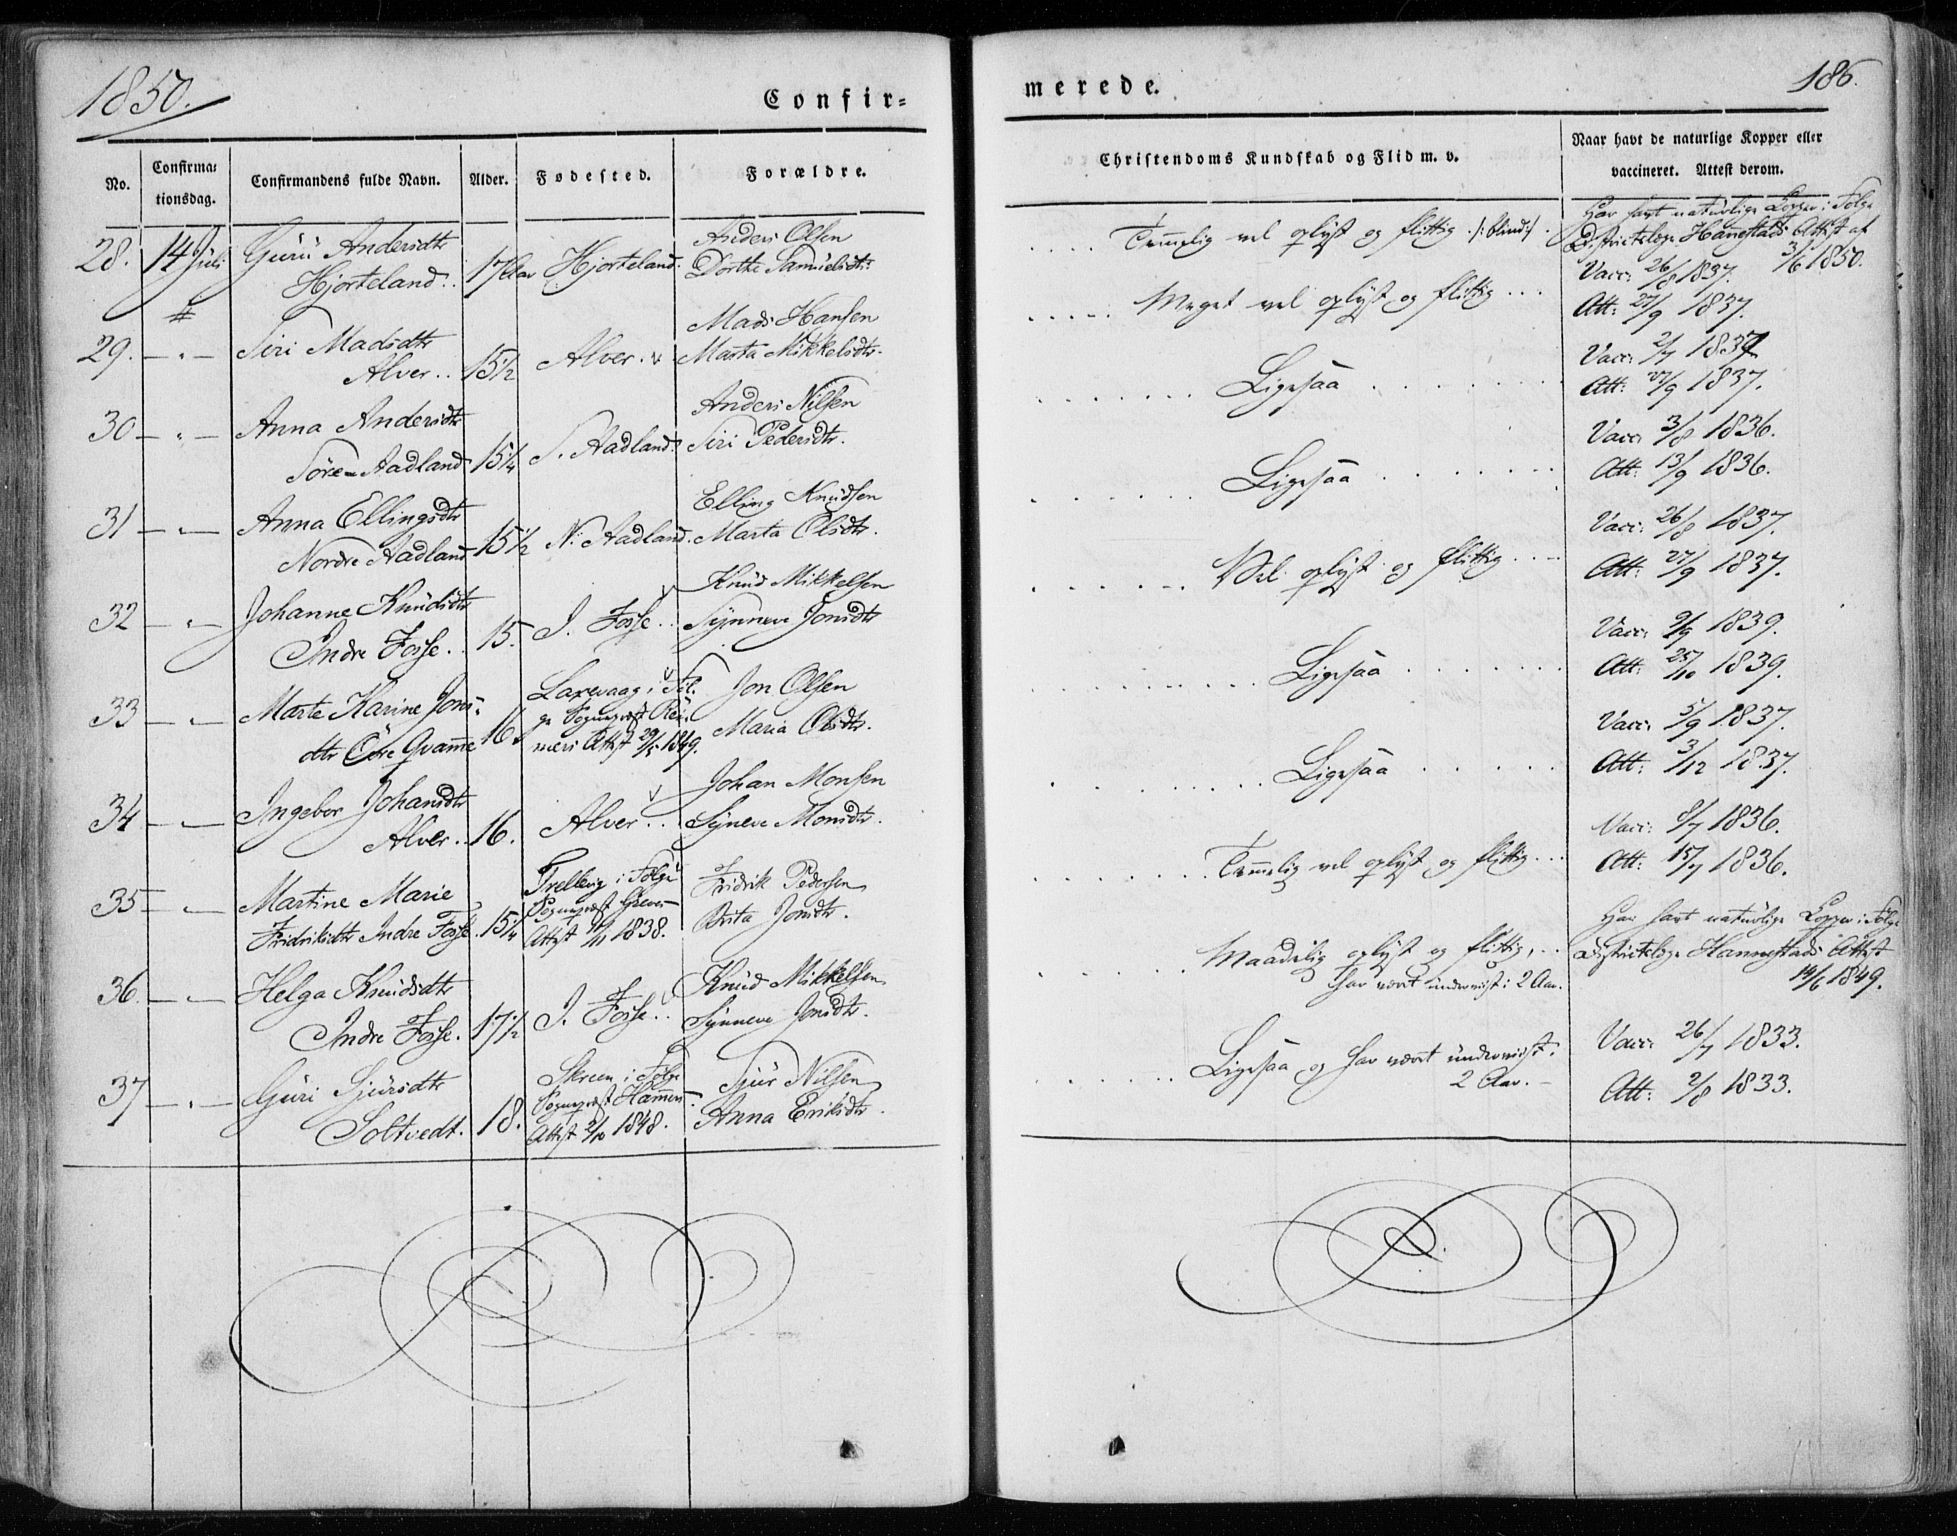 1850.
Confir=
No.
Confirma:
tionsdag.
Confirmandens fulde Navn.
Alder.
Fødested.
Forældre.
28. 14 Juli Guru Andersdtr 17 Aar Hjorteland. Anders Olsen
Hjorteland. Dorthe Samuelsdtr.
29. — " — Siri Madsdtr 15½ Alver. Mads Hansen
Alver.. Marta Mikkelsdtr.
30 — " — Anna Andersdtr 15¼ S. Aadland. Anders Nilsen
Søre Aadland Siri Pedersdtr.
31 — " — Anna Ellingsdtr 15½ N: Aadland. Elling Knudsen
Nordre Aadland Marta Olsdtr.
32 — " — Johanne Knudsdtr 15. I. Fosse.. Knud Mikkelsen
Indre Fosse.. Synneve Jonsdtr
33 — " — Marte Karine Jons- 16. Laxevaag i Føl- Jon Olsen
dtr Øvre Qvamme ge Sognepræst Reu- Maria Olsdtr.
mers Attest 29/5 1849.
34 — " — Ingebor Johansdtr 16. Alver.. Johan Monsen
Alver.. Synneve Monsdtr.
35 — " — Martine Marie 15¼ i Følge Fridrik Pedersen
Fridriksdtr Indre Fosse Sognepræst Greves Brita Jonsdtr.
Attest 1838.
36. — " — Helga Knudsdtr 17½ I. Fosse.. Knud Mikkelsen
Indre Fosse. Synneve Jonsdtr.
37 — " — Guri Sjursdtr 18. Skreen i Følge Sjur Nilsen
Soltvedt. Sognepræst Anna Eriksdtr.
Attest 2/10 1848.
merede.
186.
Christendoms Kundskab og Flid m. v.
Naar havt de naturlige Kopper eller
vaccineret. Attest derom.
.... Temmelig vel oplyst og flittig /:blind:/. Har havt naturlige Kopper i Følge
Districtslæge Hannestads Attest af
3/6 1850.
..... Meget vel oplyst og flittig ... Vacc: 26/8 1837.
Att: 27/9 1837.
....... Ligesaa ....... Vacc: 2/7 1837
Att: 27/9 1837.
....... Ligesaa ....... Vacc: 3/8 1836.
Att: 13/9 1836.
...... Vel oplyst og flittig ... Vacc: 26/8 1837.
Att: 27/9 1837.
.......... Ligesaa ....... Vacc: 9/9 1839.
Att: 25/10 1839.
......... Ligesaa ...... Vacc: 5/9 1837.
Att: 3/12 1837.
....... Temmelig vel oplyst og flittig ... Vacc: 8/7 1836.
Att: 15/7 1836.
...... Maadelig oplyst og flittig, ... Har havt naturlige Kopper i Følge
har været underviist i 2 Aar. Districtslæge Hannestads Attest
14/6 1849.
...... Ligesaa og har været underviist i Vacc: 26/7 1833.
2 Aar. — Att: 2/8 1833.